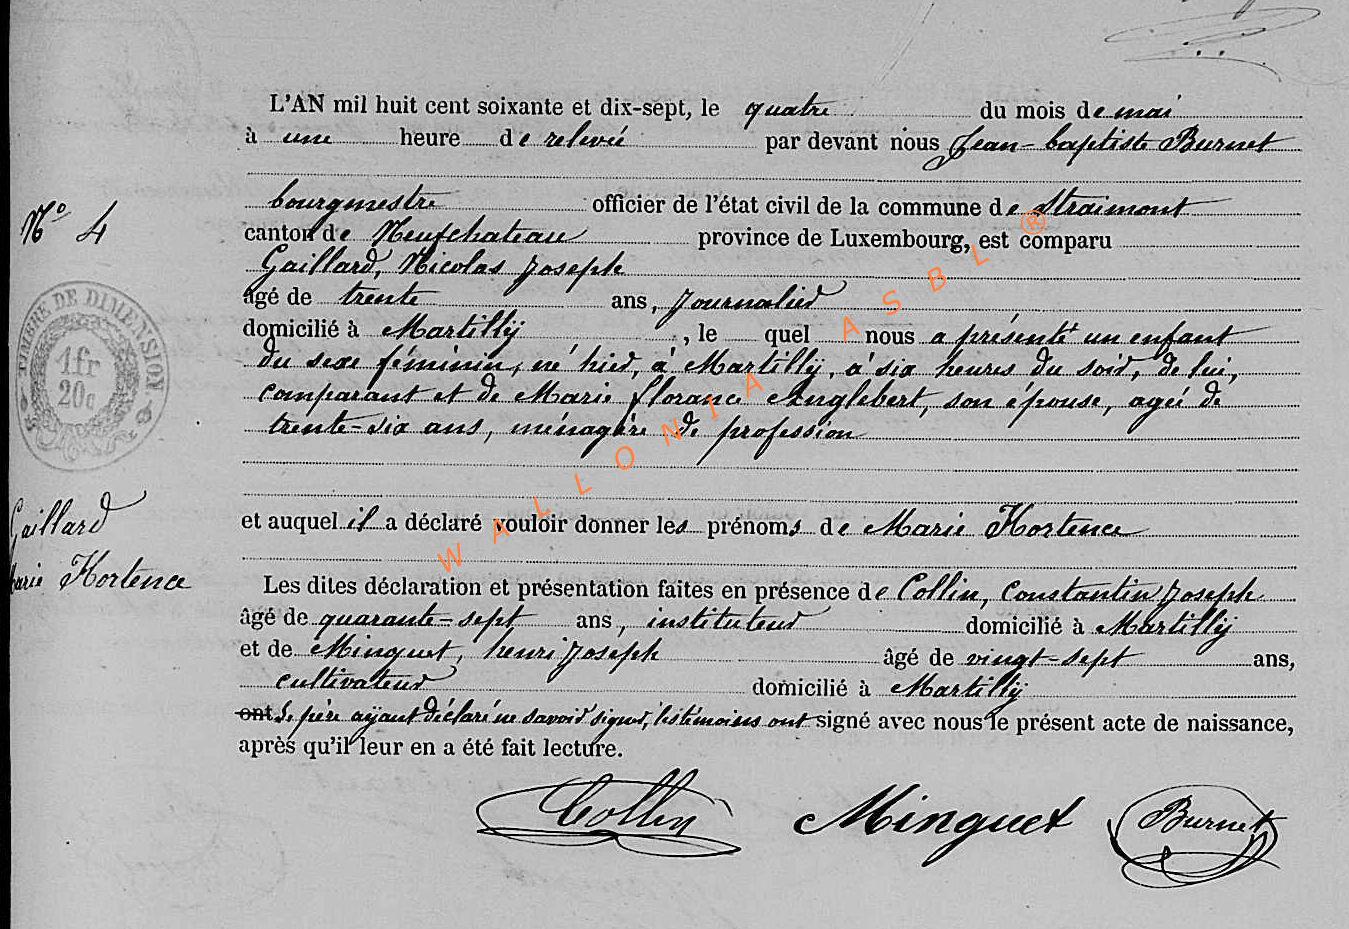 L'AN mil huit cent soixante et dix-sept, le quatre du mois de mai
à une heure de relevée par devant nous Jean-baptiste Burnet
bourgmestre officier de l'état civil de la commune de Straimont
canton de Neufchateau province de Luxembourg, est comparu
Gaillard, Nicolas Joseph
âgé de trente ans, Journalier
domicilié à Martilly, le quel nous a présenté un enfant
du sexe féminin, né hier, à Martilly, à six heures du soir, de lui,
comparant et de Marie florance Anglebert, son épouse, agée de
trente-six ans, ménagère de profession
et auquel il a déclaré vouloir donner les prénoms de Marie Hortence
Les dites déclaration et présentation faites en présence de Collin, Constantin Joseph
âgé de quarante-sept ans, instituteur domicilié à Martilly
et de Minguet, henri Joseph âgé de vingt-sept ans,
cultivateur domicilié à Martilly
ont Le père ayant déclaré ne savoir signer, les témoins ont signé avec nous le présent acte de naissance,
après qu'il leur en a été fait lecture.
Collin Minguet Burnet
N° 4
TIMBRE DE DIMENSION
1fr
20c
Gaillard
Marie Hortence
WALLONIA ASBL ®